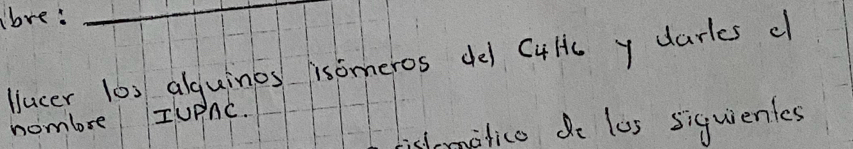 bre:
Hacer los alquinos isómeros del C4H6 y darles el
nombre IUPAC.
sistemático de los siguientes